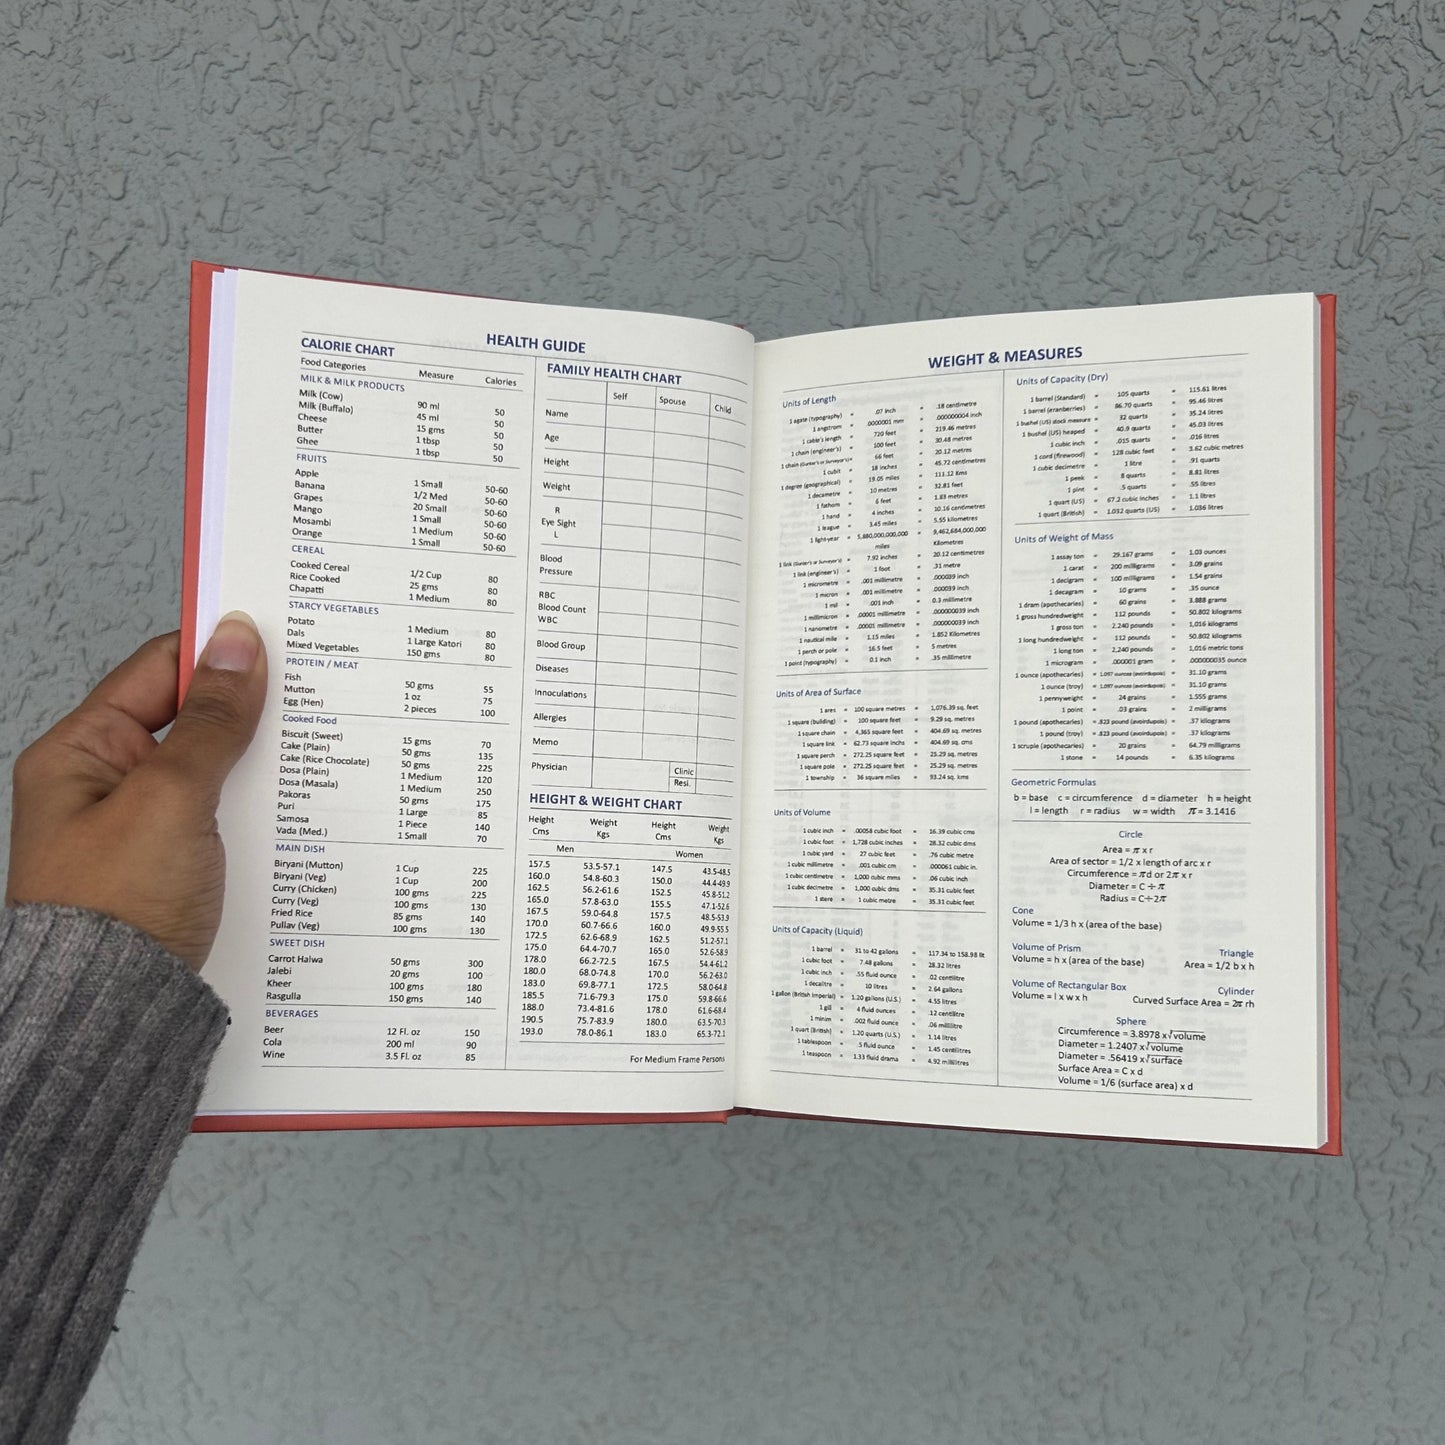 HEALTH GUIDE
CALORIE CHART
Food Categories Measure Calories
MILK & MILK PRODUCTS
Milk (Cow) 90 ml 50
Milk (Buffalo) 45 ml 50
Cheese 15 gms 50
Butter 1 tbsp 50
Ghee 1 tbsp 50
FRUITS
Apple 1 Small 50-60
Banana 1/2 Med 50-60
Grapes 20 Small 50-60
Mango 1 Small 50-60
Mosambi 1 Medium 50-60
Orange 1 Small 50-60
CEREAL
Cooked Cereal 1/2 Cup 80
Rice Cooked 25 gms 80
Chapatti 1 Medium 80
STARCY VEGETABLES
Potato 1 Medium 80
Dals 1 Large Katori 80
Mixed Vegetables 150 gms 80
PROTEIN / MEAT
Fish 50 gms 55
Mutton 1 oz 75
Egg (Hen) 2 pieces 100
Cooked Food
Biscuit (Sweet) 15 gms 70
Cake (Plain) 50 gms 135
Cake (Rice Chocolate) 50 gms 225
Dosa (Plain) 1 Medium 120
Dosa (Masala) 1 Medium 250
Pakoras 50 gms 175
Puri 1 Large 85
Samosa 1 Piece 140
Vada (Med.) 1 Small 70
MAIN DISH
Biryani (Mutton) 1 Cup 225
Biryani (Veg) 1 Cup 200
Curry (Chicken) 100 gms 225
Curry (Veg) 100 gms 130
Fried Rice 85 gms 140
Pullav (Veg) 100 gms 130
SWEET DISH
Carrot Halwa 50 gms 300
Jalebi 20 gms 100
Kheer 100 gms 180
Rasgulla 150 gms 140
BEVERAGES
Beer 12 Fl. oz 150
Cola 200 ml 90
Wine 3.5 Fl. oz 85
FAMILY HEALTH CHART
Self Spouse Child
Name
Age
Height
Weight
R
Eye Sight
L
Blood
Pressure
RBC
Blood Count
WBC
Blood Group
Diseases
Innoculations
Allergies
Memo
Physician Clinic
Resi.
HEIGHT & WEIGHT CHART
Height Weight Height Weight
Cms Kgs Cms Kgs
Men Women
157.5 53.5-57.1 147.5 43.5-48.5
160.0 54.8-60.3 150.0 44.4-49.9
162.5 56.2-61.6 152.5 45.8-51.2
165.0 57.8-63.0 155.5 47.1-52.6
167.5 59.0-64.8 157.5 48.5-53.9
170.0 60.7-66.6 160.0 49.9-55.5
172.5 62.6-68.9 162.5 51.2-57.1
175.0 64.4-70.7 165.0 52.6-58.9
178.0 66.2-72.5 167.5 54.4-61.2
180.0 68.0-74.8 170.0 56.2-63.0
183.0 69.8-77.1 172.5 58.0-64.8
185.5 71.6-79.3 175.0 59.8-66.6
188.0 73.4-81.6 178.0 61.6-68.4
190.5 75.7-83.9 180.0 63.5-70.3
193.0 78.0-86.1 183.0 65.3-72.1
For Medium Frame Persons
WEIGHT & MEASURES
Units of Length
1 agate (typography) = .07 inch = .18 centimetre
1 angstrom = .0000001 mm = .000000004 inch
1 cable's length = 720 feet = 219.46 metres
1 chain (engineer's) = 100 feet = 30.48 metres
1 chain (Gunter's or Surveyor's) = 66 feet = 20.12 metres
1 cubit = 18 inches = 45.72 centimetres
1 degree (geographical) = 19.05 miles = 111.12 Kms
1 decametre = 10 metres = 32.81 feet
1 fathom = 6 feet = 1.83 metres
1 hand = 4 inches = 10.16 centimetres
1 league = 3.45 miles = 5.55 kilometres
1 light-year = 5,880,000,000,000 miles = 9,462,684,000,000 Kilometres
1 link (Gunter's or Surveyor's) = 7.92 inches = 20.12 centimetres
1 link (engineer's) = 1 foot = .31 metre
1 micrometre = .001 millimetre = .000039 inch
1 micron = .001 millimetre = .000039 inch
1 mil = .001 inch = 0.3 millimetre
1 millimicron = .00001 millimetre = .000000039 inch
1 nanometre = .00001 millimetre = .000000039 inch
1 nautical mile = 1.15 miles = 1.852 Kilometres
1 perch or pole = 16.5 feet = 5 metres
1 point (typography) = 0.1 inch = .35 millimetre
Units of Area of Surface
1 ares = 100 square metres = 1,076.39 sq. feet
1 square (building) = 100 square feet = 9.29 sq. metres
1 square chain = 4,365 square feet = 404.69 sq. metres
1 square link = 62.73 square inchs = 404.69 sq. cms
1 square perch = 272.25 square feet = 25.29 sq. metres
1 square pole = 272.25 square feet = 25.29 sq. metres
1 township = 36 square miles = 93.24 sq. kms
Units of Volume
1 cubic inch = .00058 cubic foot = 16.39 cubic cms
1 cubic foot = 1,728 cubic inches = 28.32 cubic dms
1 cubic yard = 27 cubic feet = .76 cubic metre
1 cubic millimetre = .001 cubic cm = .000061 cubic in.
1 cubic centimetre = 1,000 cubic mms = .06 cubic inch
1 cubic decimetre = 1,000 cubic dms = 35.31 cubic feet
1 stere = 1 cubic metre = 35.31 cubic feet
Units of Capacity (Liquid)
1 barrel = 31 to 42 gallons = 117.34 to 158.98 lit
1 cubic foot = 7.48 gallons = 28.32 litres
1 cubic inch = .55 fluid ounce = .02 centilitre
1 decalitre = 10 litres = 2.64 gallons
1 gallon (British Imperial) = 1.20 gallons (U.S.) = 4.55 litres
1 gill = 4 fluid ounces = .12 centilitre
1 minim = .002 fluid ounce = .06 millilitre
1 quart (British) = 1.20 quarts (U.S.) = 1.14 litres
1 tablespoon = .5 fluid ounce = 1.45 centilitres
1 teaspoon = 1.33 fluid drama = 4.92 millilitres
Units of Capacity (Dry)
1 barrel (Standard) = 105 quarts = 115.61 litres
1 barrel (cranberries) = 86.70 quarts = 95.46 litres
1 bushel (US) stock measure = 32 quarts = 35.24 litres
1 bushel (US) heaped = 40.9 quarts = 45.03 litres
1 cubic inch = .015 quarts = .016 litres
1 cord (firewood) = 128 cubic feet = 3.62 cubic metres
1 cubic decimetre = 1 litre = .91 quarts
1 peek = 8 quarts = 8.81 litres
1 pint = .5 quarts = .55 litres
1 quart (US) = 67.2 cubic inches = 1.1 litres
1 quart (British) = 1.032 quarts (US) = 1.036 litres
Units of Weight of Mass
1 assay ton = 29.167 grams = 1.03 ounces
1 carat = 200 milligrams = 3.09 grains
1 decigram = 100 milligrams = 1.54 grains
1 decagram = 10 grams = .35 ounce
1 dram (apothecaries) = 60 grains = 3.888 grams
1 gross hundredweight = 112 pounds = 50.802 kilograms
1 gross ton = 2,240 pounds = 1,016 kilograms
1 long hundredweight = 112 pounds = 50.802 kilograms
1 long ton = 2,240 pounds = 1,016 metric tons
1 microgram = .000001 gram = .000000035 ounce
1 ounce (apothecaries) = 1,097 ounces (avoirdupois) = 31.10 grams
1 ounce (troy) = 1,097 ounces (avoirdupois) = 31.10 grams
1 pennyweight = 24 grains = 1.555 grams
1 point = .03 grains = 2 milligrams
1 pound (apothecaries) = .823 pound (avoirdupois) = .37 kilograms
1 pound (troy) = .823 pound (avoirdupois) = .37 kilograms
1 scruple (apothecaries) = 20 grains = 64.79 milligrams
1 stone = 14 pounds = 6.35 kilograms
Geometric Formulas
b = base c = circumference d = diameter h = height
l = length r = radius w = width π = 3.1416
Circle
Area = π x r
Area of sector = 1/2 x length of arc x r
Circumference = πd or 2π x r
Diameter = C ÷ π
Radius = C÷2π
Cone
Volume = 1/3 h x (area of the base)
Volume of Prism Triangle
Volume = h x (area of the base) Area = 1/2 b x h
Volume of Rectangular Box Cylinder
Volume = l x w x h Curved Surface Area = 2π rh
Sphere
Circumference = 3.8978 x√volume
Diameter = 1.2407 x√volume
Diameter = .56419 x√surface
Surface Area = C x d
Volume = 1/6 (surface area) x d